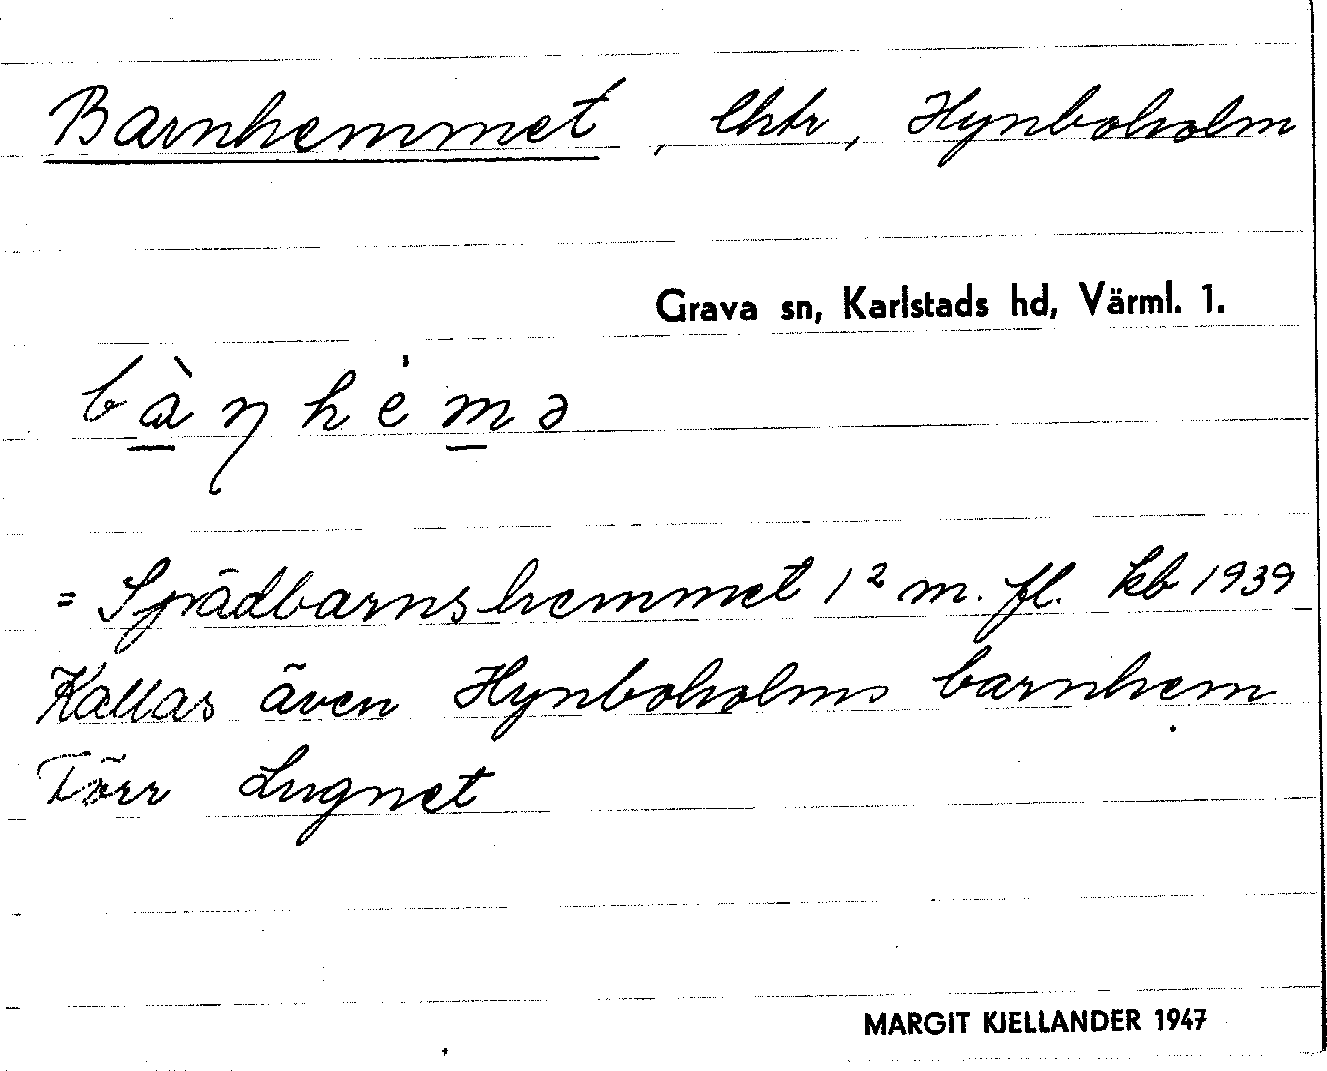 Barnhemmet, lhtr, Hynboholm
Grava sn, Karlstads hd, Värml. 1.
bàƞhémə
= Spädbarnshemmet 1² m. fl. kb 1939
Kallas även Hynboholms barnhem
Förr Lugnet
MARGIT KJELLANDER 1947